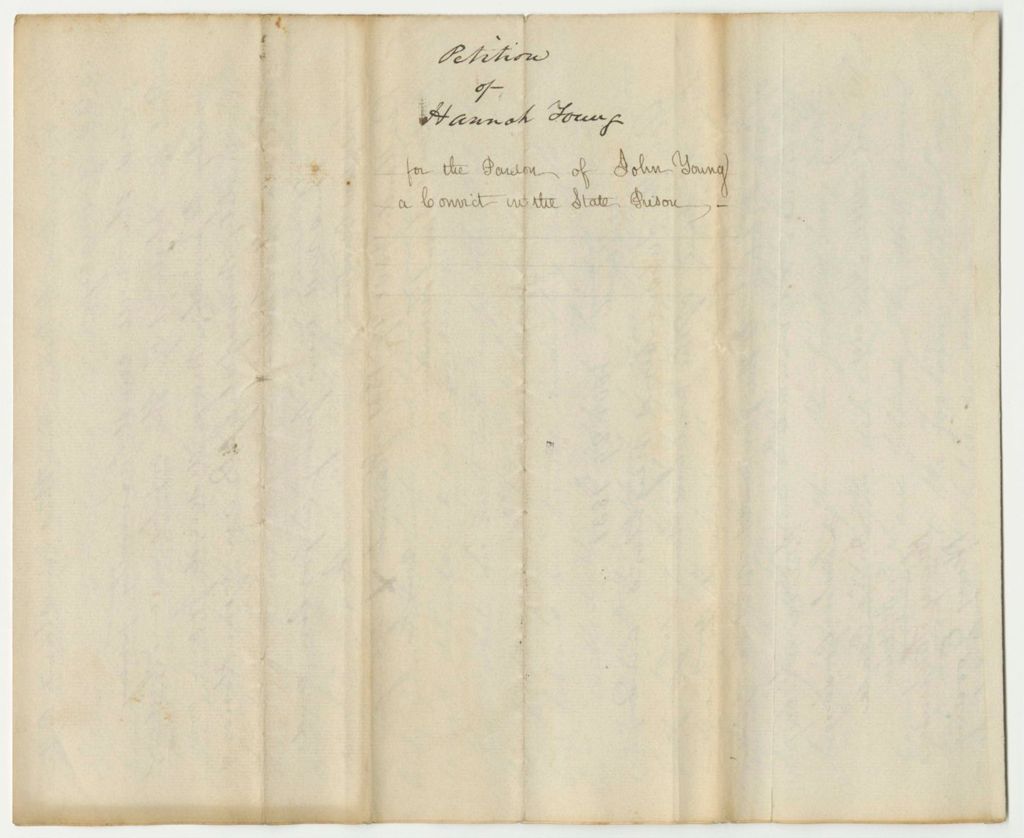 Petition
of
Hannah Young
for the Pardon of John Young
a Convict in the State Prison –